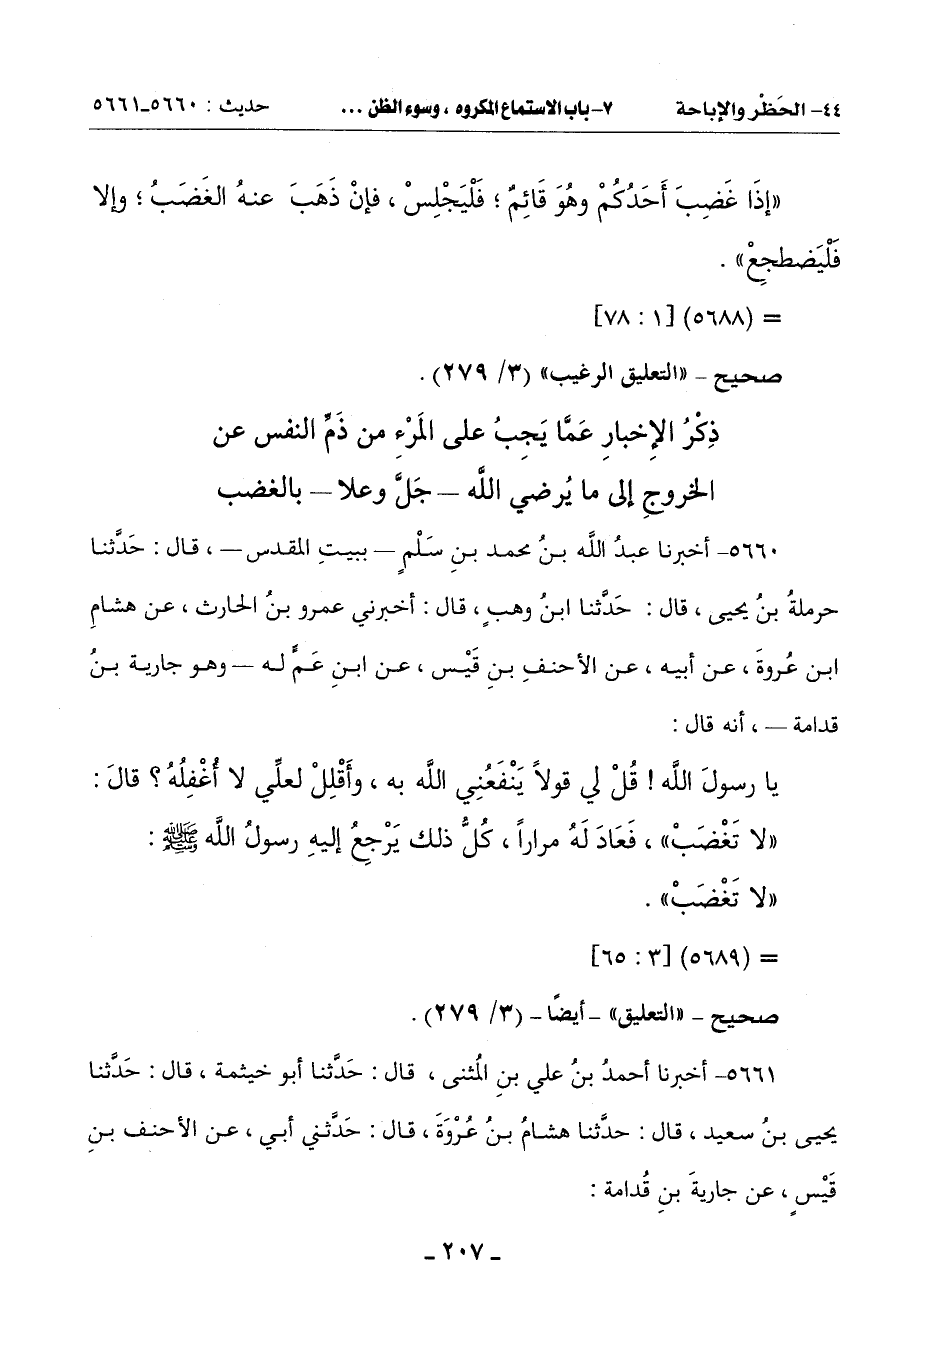 ٤٤- الحَظْر والإباحة ٧- باب الاستماع المكروه ، وسوء الظن ... حديث : ٥٦٦٠-٥٦٦١
«إذَا غَضِبَ أَحَدُكُمْ وهُوَ قَائِمٌ ؛ فَلْيَجْلِسْ ، فإنْ ذَهَبَ عنهُ الغَضَبُ ؛ وإلا
فَلْيَضطجِعْ» .
= (٥٦٨٨) [١ : ٧٨]
صحيح - «التعليق الرغيب» (٣/ ٢٧٩) .
ذِكْرُ الإخبارِ عَمَّا يَجِبُ على المَرْءِ من ذَمِّ النفس عن
الخروجِ إلى ما يُرضي اللَّه — جَلَّ وعلا — بالغضب
٥٦٦٠- أخبرنا عبدُ اللَّه بنُ محمد بنِ سَلْمٍ — ببيتِ المقدس — ، قال : حَدَّثنا
حرملةُ بنُ يحيى ، قال : حَدَّثنا ابنُ وهبٍ ، قال : أخبرني عمرو بنُ الحارث ، عن هشامِ
ابن عُروةَ ، عن أبيه ، عن الأحنفِ بنِ قَيْس ، عن ابنِ عَمٍّ له — وهو جارية بنُ
قدامة — ، أنه قال :
يا رسولَ اللَّه ! قُلْ لي قولاً يَنْفَعُنِي اللَّه به ، وأَقْلِلْ لعلِّي لا أُغْفِلُهُ ؟ قالَ :
«لا تَغْضَبْ» ، فَعَادَ لَهُ مراراً ، كُلُّ ذلك يَرْجِعُ إليهِ رسولُ اللَّه ﷺ :
«لا تَغْضَبْ» .
= (٥٦٨٩) [٣ : ٦٥]
صحيح - «التعليق» - أيضًا - (٣/ ٢٧٩) .
٥٦٦١- أخبرنا أحمدُ بنُ علي بنِ المُثنى ، قال : حَدَّثنا أبو خيثمة ، قال : حَدَّثنا
يحيى بنُ سعيد ، قال : حدَّثنا هشامُ بنُ عُرْوَةَ ، قال : حَدَّثني أبي ، عن الأحنف بنِ
قَيْسٍ ، عن جاريةَ بنِ قُدامة :
- ٢٠٧ -